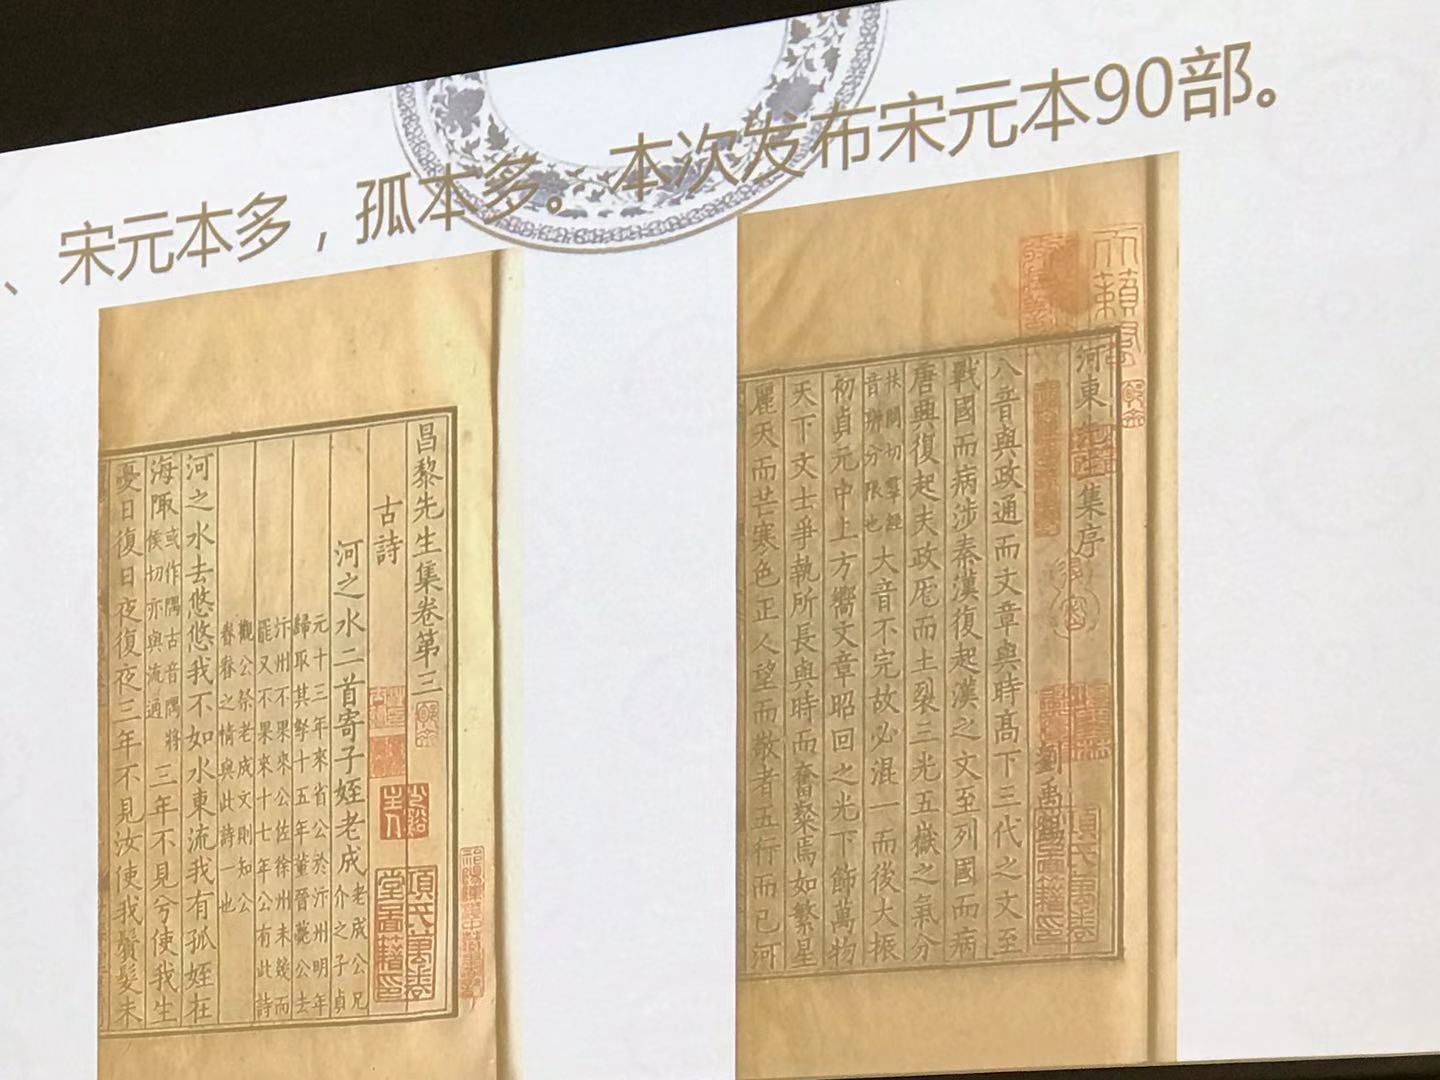 、宋元本多，孤本多。本次发布宋元本90部。
昌黎先生集卷第三
古詩
河之水二首寄子姪老成老成公兄
介之子貞
元十三年來省公於汴州明年
歸取其孥十五年董晉薨公去
汴州不果來公佐徐州未幾而
罷又不果來十七年公有此詩
觀公祭老成文則知公
眷眷之情與此詩一也
河之水去悠悠我不如水東流我有孤姪在
海陬或作隅古音隅將
侯切亦與流過三年不見兮使我生
憂日復日夜復夜三年不見汝使我鬢髮未
項氏萬卷
堂圖籍印
河東先生集序
劉禹錫
八音與政通而文章與時髙下三代之文至
戰國而病涉秦漢復起漢之文至列國而病
唐興復起夫政厖而土裂三光五嶽之氣分
扶問切羣經
音辨分限也大音不完故必混一而後大振
初貞元中上方嚮文章昭回之光下飾萬物
天下文士爭執所長與時而奮粲焉如繁星
麗天而芒寒色正人望而敬者五行而已河
項氏萬卷